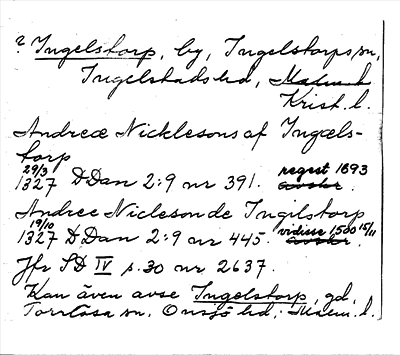 ? Ingelstorp, by, Ingelstorps sn,
Ingelstads hd, Malm. l.
Krist. l.
Andreæ Nicklesons af Ingæls-
torp
29/3 1327 DDan 2:9 nr 391. regest 1693 avskr.
Andree Niclesson de Ingilstorp
19/10 1327 DDan 2:9 nr 445. vidisse 1500 15/11 avskr.
Jfr SD IV s. 30 nr 2637.
Kan även avse Ingelstorp, gd,
Torrlösa sn, Onsjö hd, Malm. l.